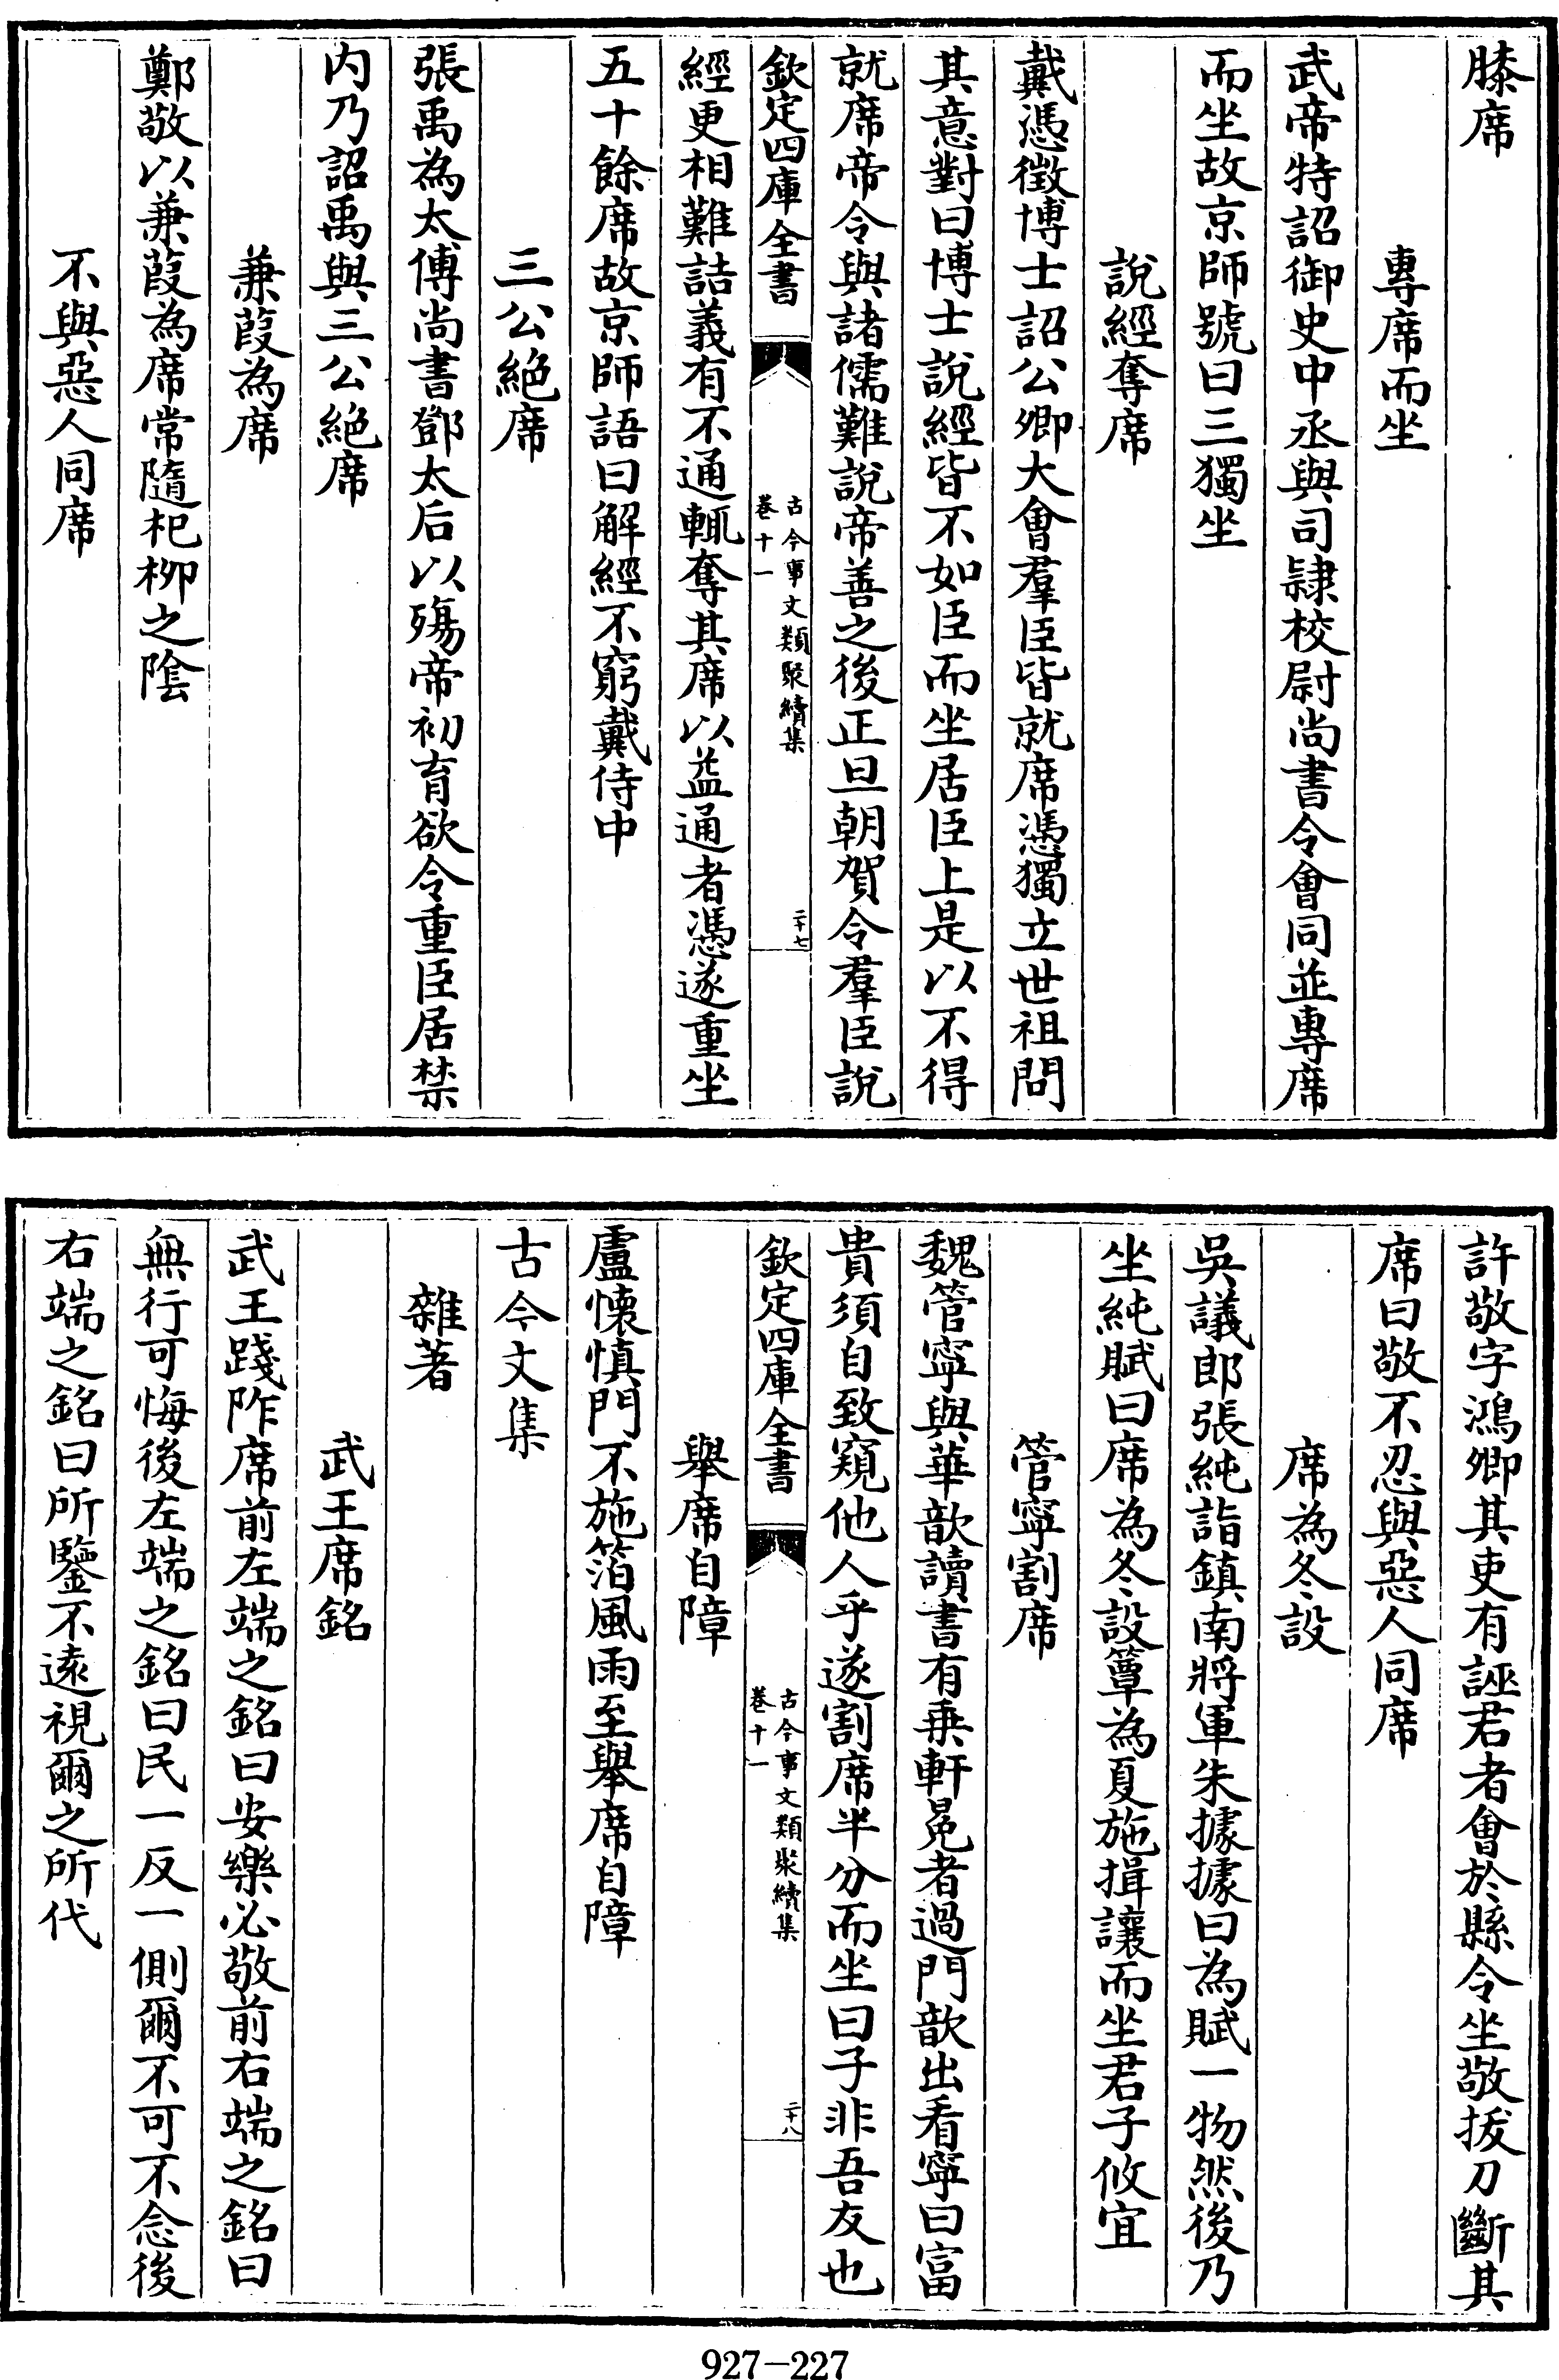 膝席
專席而坐
武帝特詔御史中丞與司隷校尉尚書令會同並專席
而坐故京師號曰三獨坐
說經奪席
戴憑徵博士詔公卿大會羣臣皆就席憑獨立世祖問
其意對曰博士說經皆不如臣而坐居臣上是以不得
就席帝令與諸儒難說帝善之後正旦朝賀令羣臣說
欽定四庫全書
古今事文類聚續集
卷十一
二十七
經更相難詰義有不通輒奪其席以益通者憑遂重坐
五十餘席故京師語曰解經不窮戴侍中
三公絶席
張禹為太傅尚書鄧太后以殤帝初育欲令重臣居禁
内乃詔禹與三公絶席
蒹葭為席
鄭敬以蒹葭為席常隨杞柳之陰
不與惡人同席
許敬字鴻卿其吏有誣君者會於縣令坐敬拔刀斷其
席曰敬不忍與惡人同席
席為冬設
吳議郎張純詣鎮南將軍朱據據曰為賦一物然後乃
坐純賦曰席為冬設簟為夏施揖讓而坐君子攸宜
管寧割席
魏管寧與華歆讀書有乗軒冕者過門歆出看寧曰富
貴須自致窺他人乎遂割席半分而坐曰子非吾友也
欽定四庫全書
古今事文類聚續集
卷十一
二十八
舉席自障
盧懐慎門不施箔風雨至舉席自障
古今文集
雜著
武王席銘
武王踐阼席前左端之銘曰安樂必敬前右端之銘曰
無行可悔後左端之銘曰民一反一側爾不可不念後
右端之銘曰所鑒不逺視爾之所代
927-227